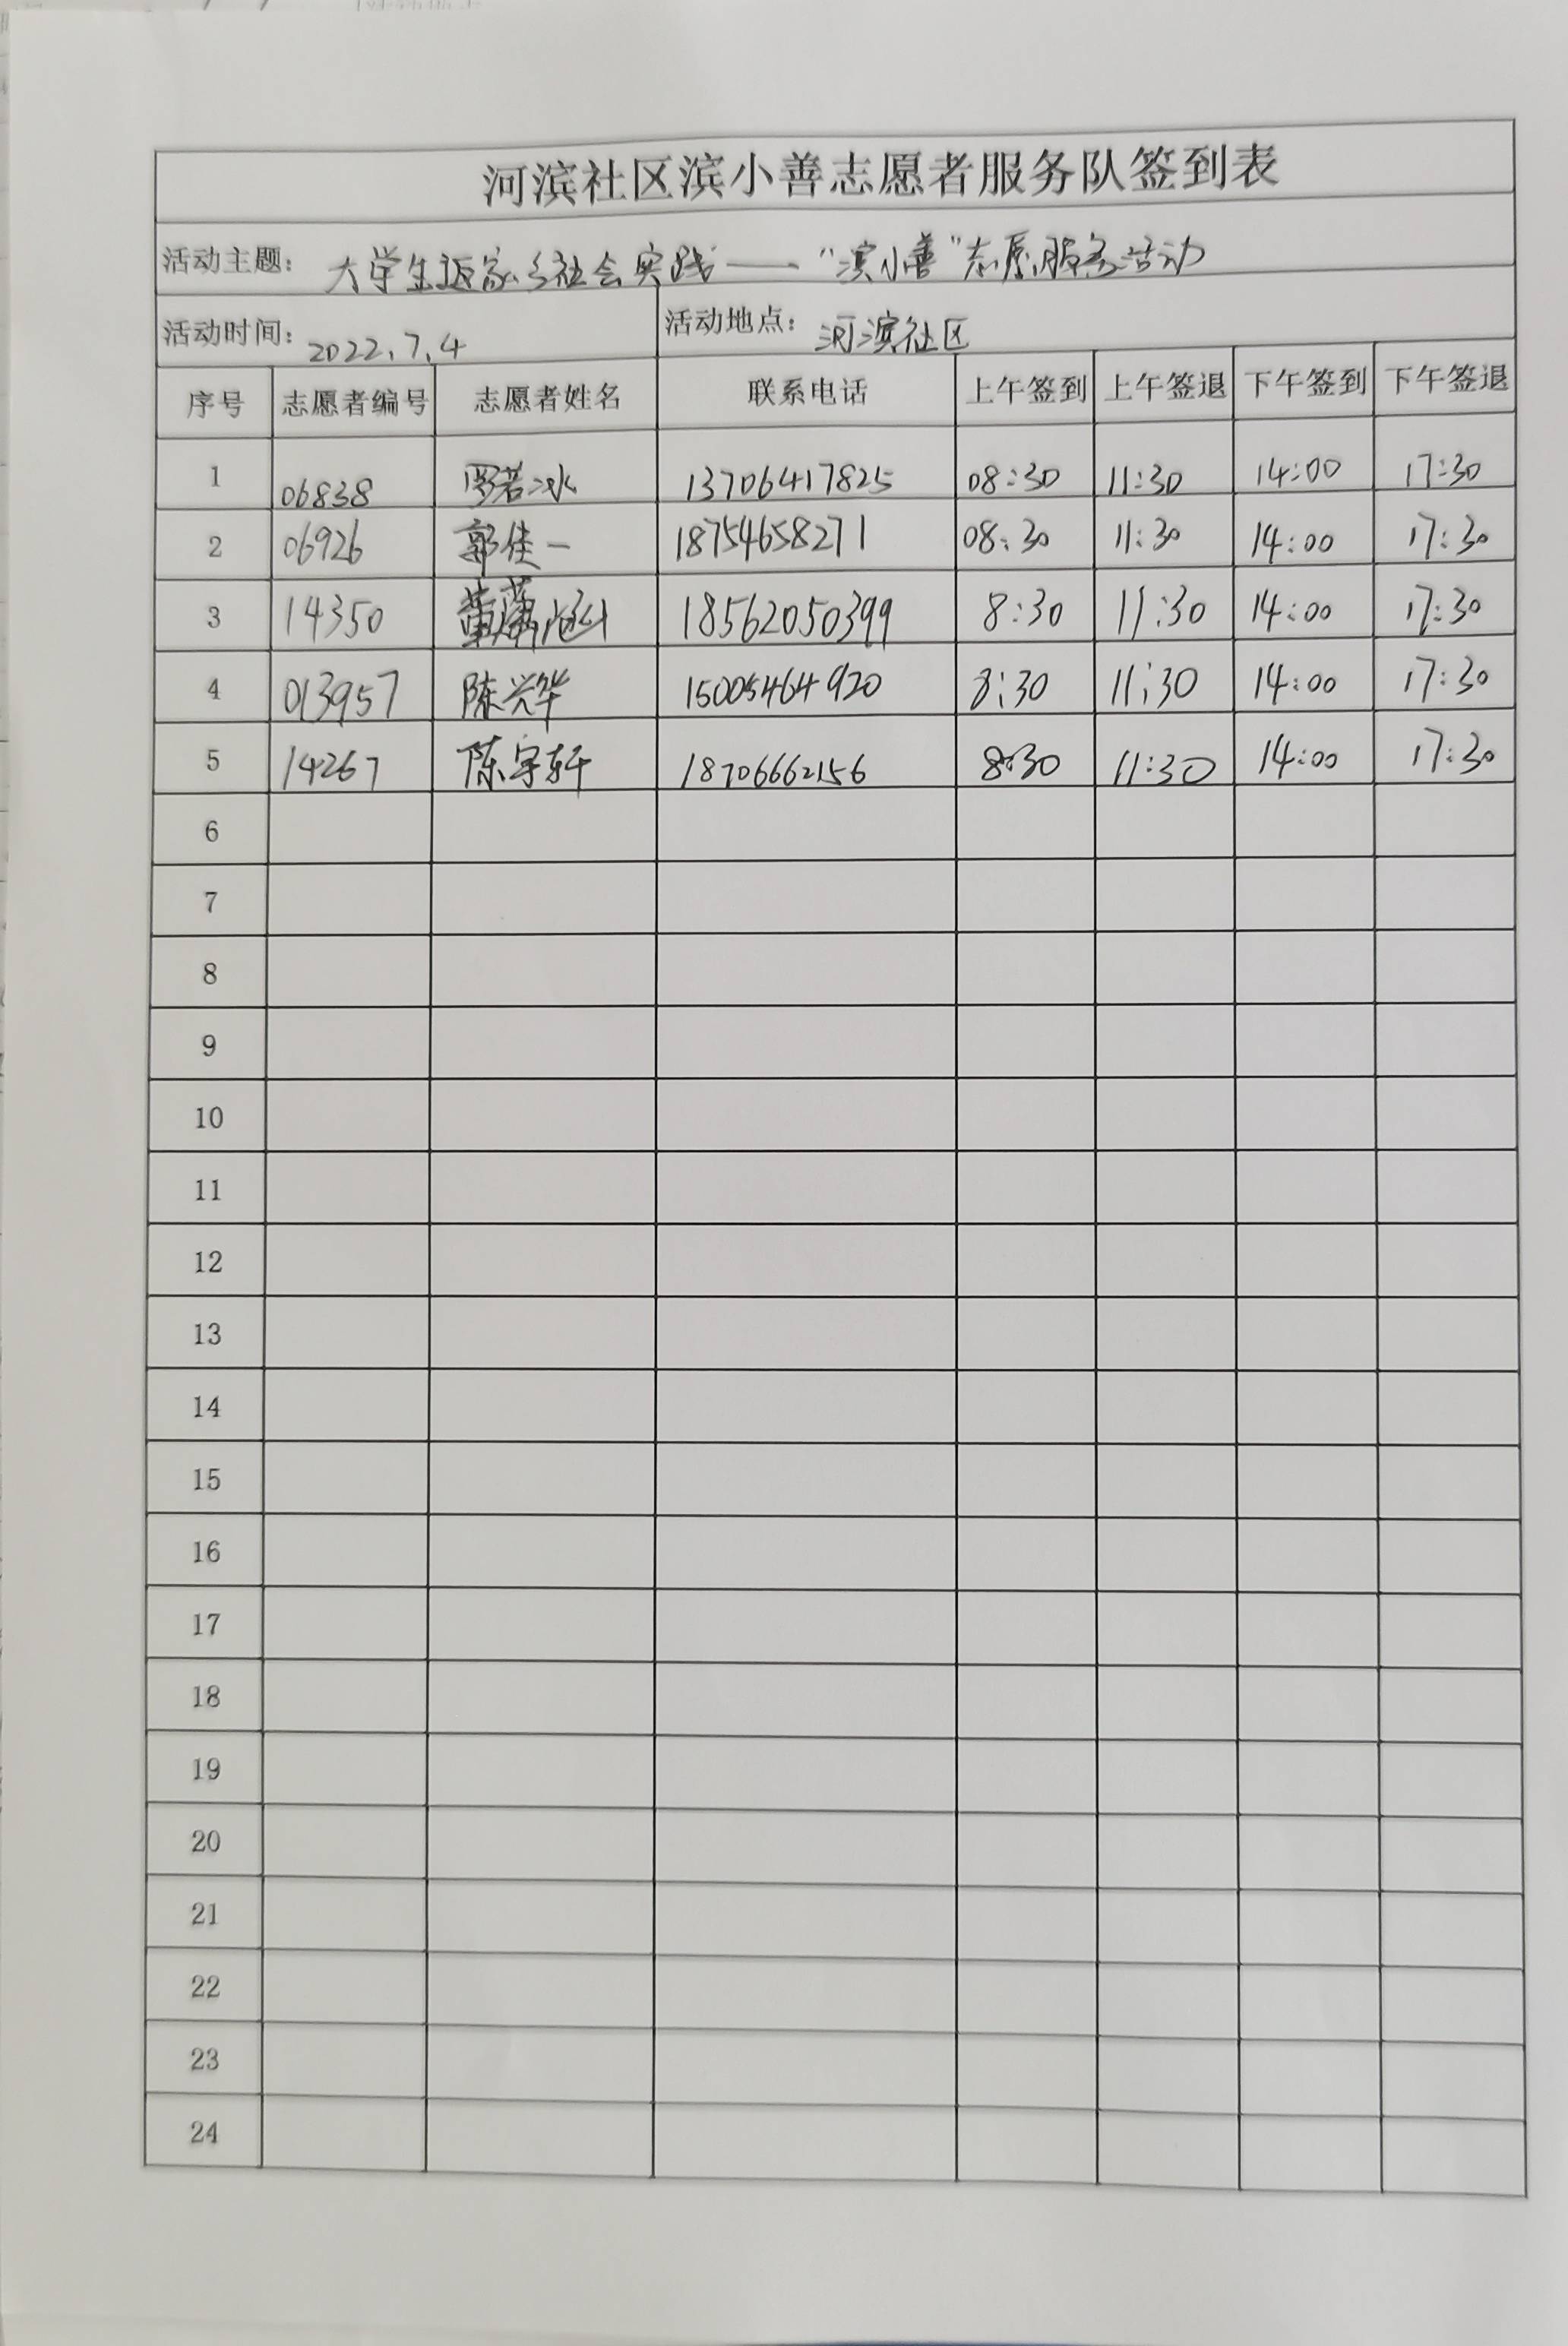 河滨社区滨小善志愿者服务队签到表
活动主题： 大学生返家乡社会实践——“滨小善”志愿服务活动
活动时间： 2022.7.4 活动地点： 河滨社区
序号 志愿者编号 志愿者姓名 联系电话 上午签到 上午签退 下午签到 下午签退
1 06838 罗若冰 13706417825 08:30 11:30 14:00 17:30
2 06926 郭佳一 18754658271 08:30 11:30 14:00 17:30
3 14350 董潇 18562050399 8:30 11:30 14:00 17:30
4 013957 陈兴华 15005464920 8:30 11:30 14:00 17:30
5 14267 陈宇轩 18706662156 8:30 11:30 14:00 17:30
6
7
8
9
10
11
12
13
14
15
16
17
18
19
20
21
22
23
24